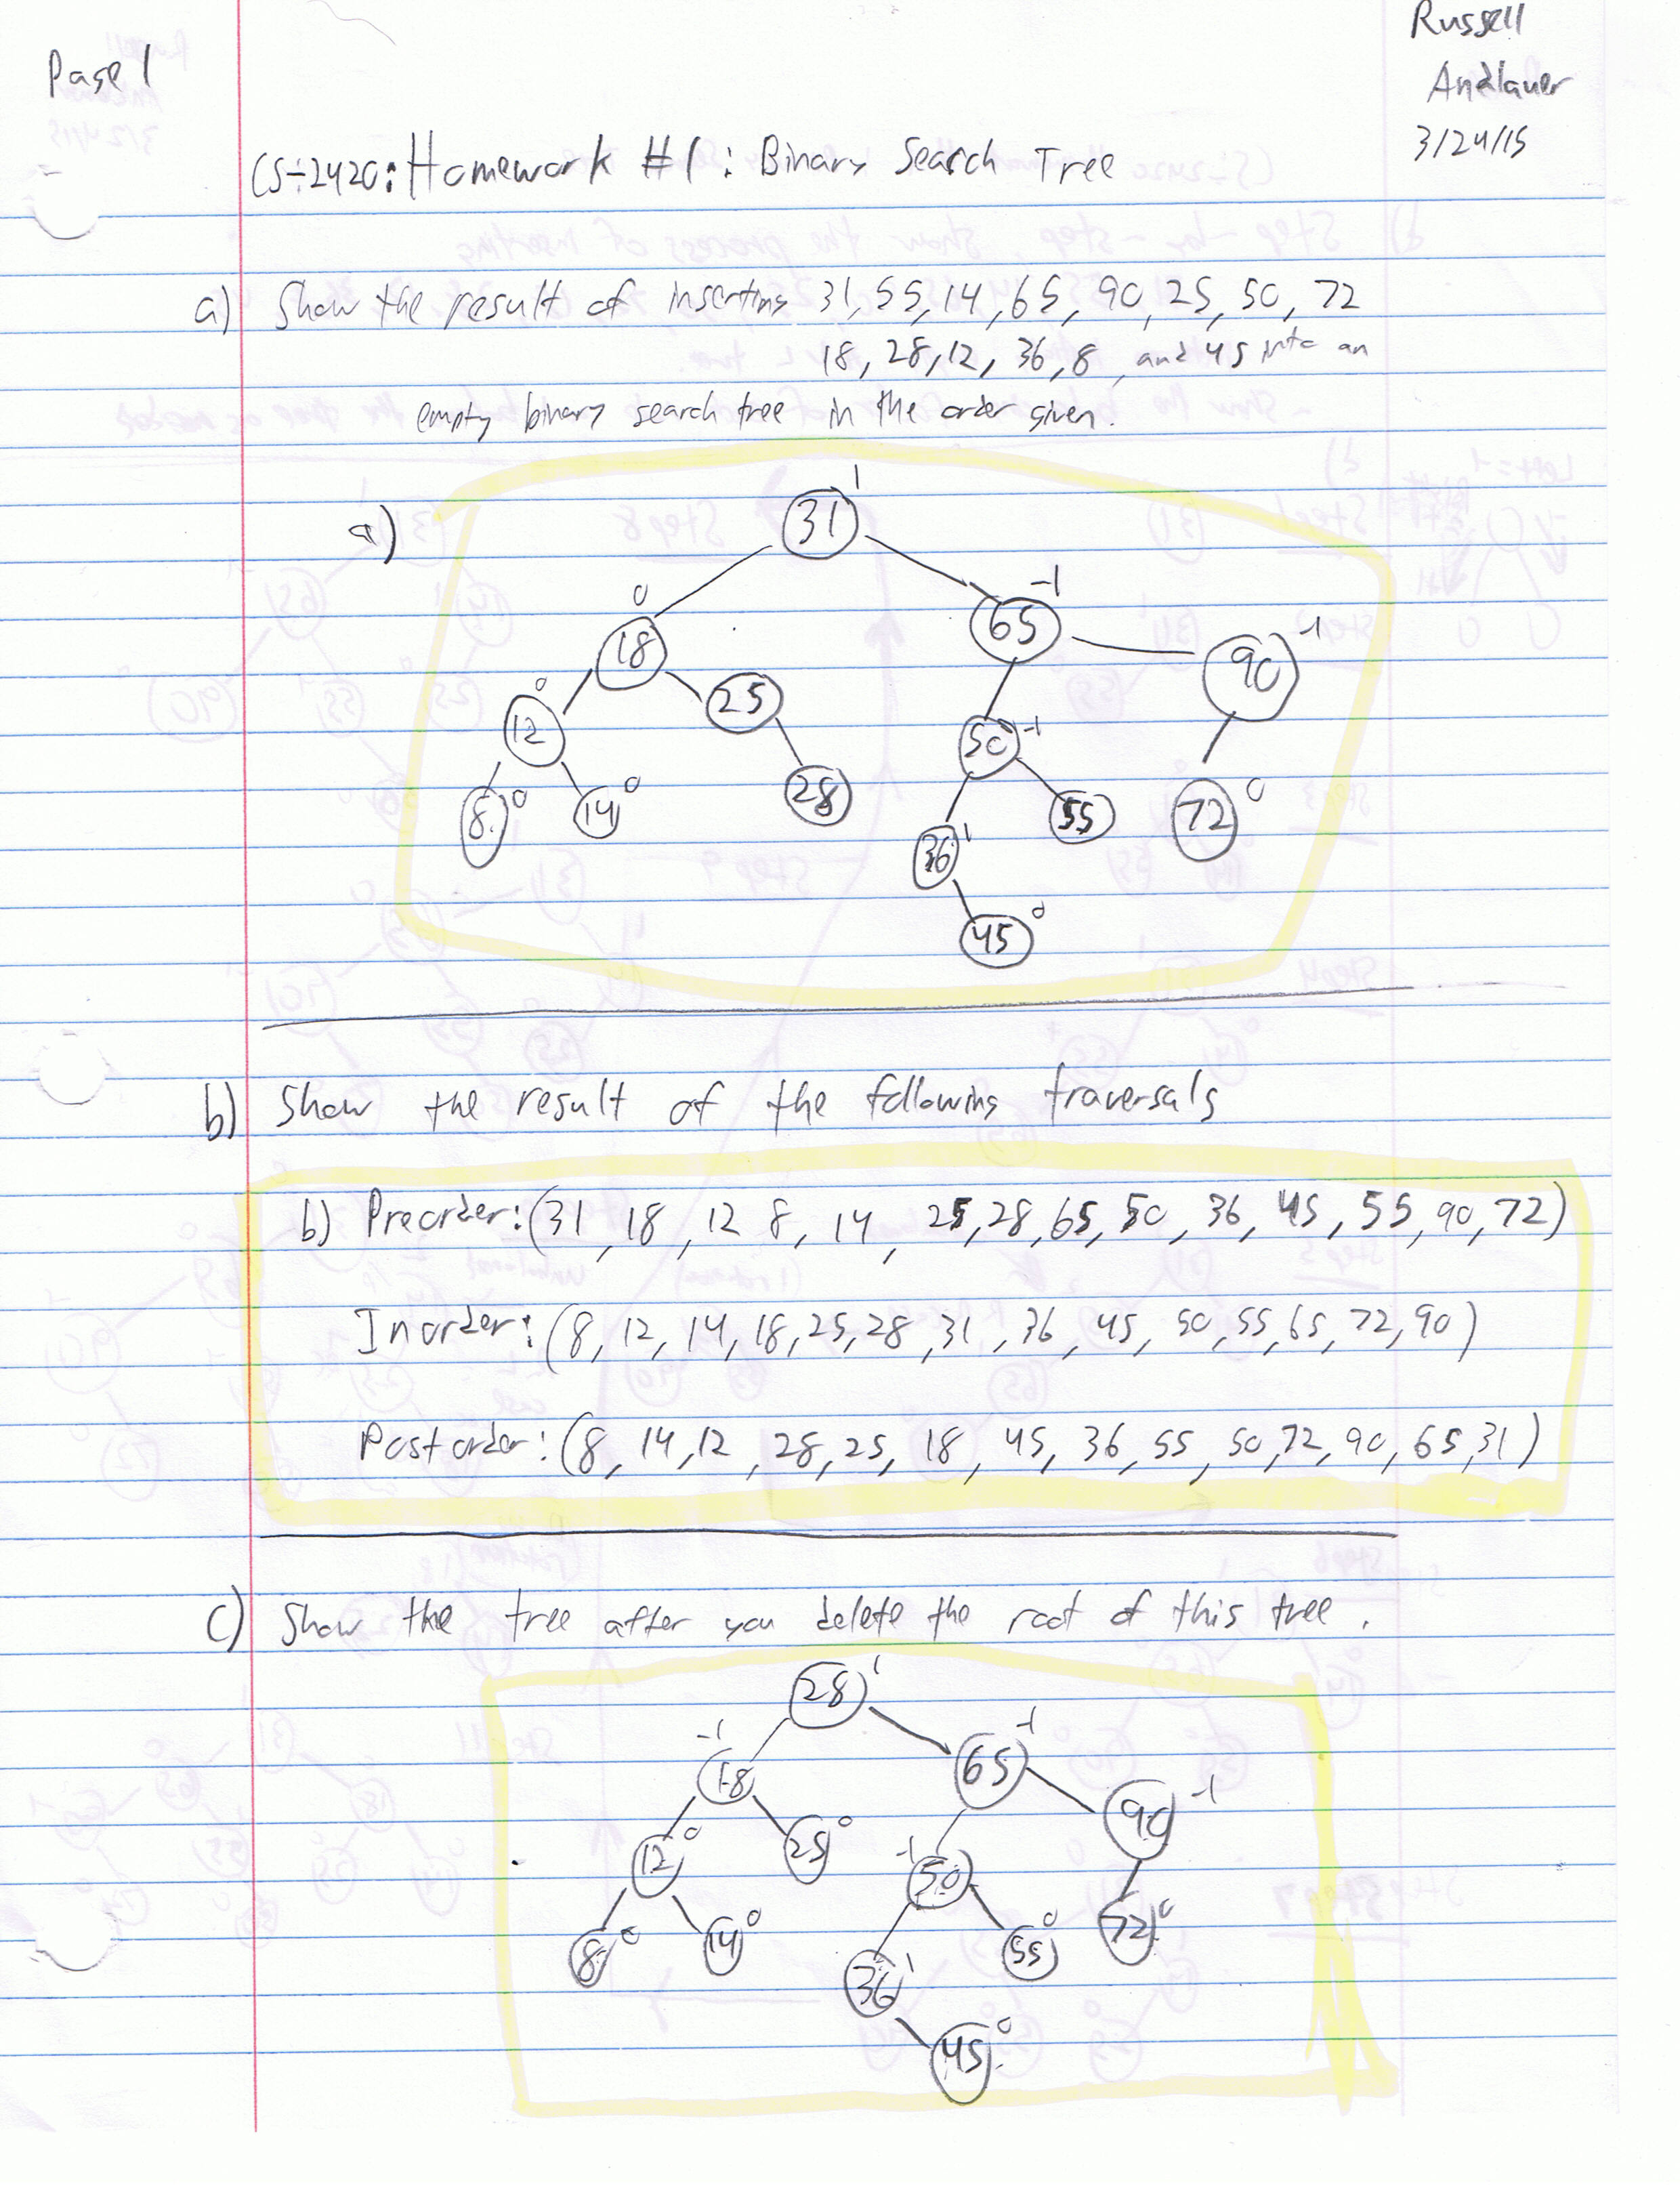 Page 1
Russell
Andlauer
3/24/15
CS-2420: Homework #1: Binary Search Tree
a) Show the result of inserting 31, 55, 14, 65, 90, 25, 50, 72
18, 28, 12, 36, 8, and 45 into an
empty binary search tree in the order given.
a)
31 1
0 65 -1
18 90 -1
0 25
12 50 -1
8 0 14 0 28 55 72 0
36 1
45 0
b) Show the result of the following traversals
b) Preorder: (31, 18, 12 8, 14, 25, 28, 65, 50, 36, 45, 55, 90, 72)
Inorder: (8, 12, 14, 18, 25, 28, 31, 36, 45, 50, 55, 65, 72, 90)
Postorder: (8, 14, 12, 28, 25, 18, 45, 36, 55, 50, 72, 90, 65, 31)
c) Show the tree after you delete the root of this tree.
28 1
-1 18 65 -1
90 -1
12 0 25 0 -1 50
8 0 14 0 55 0 72 0
36 1
45 0